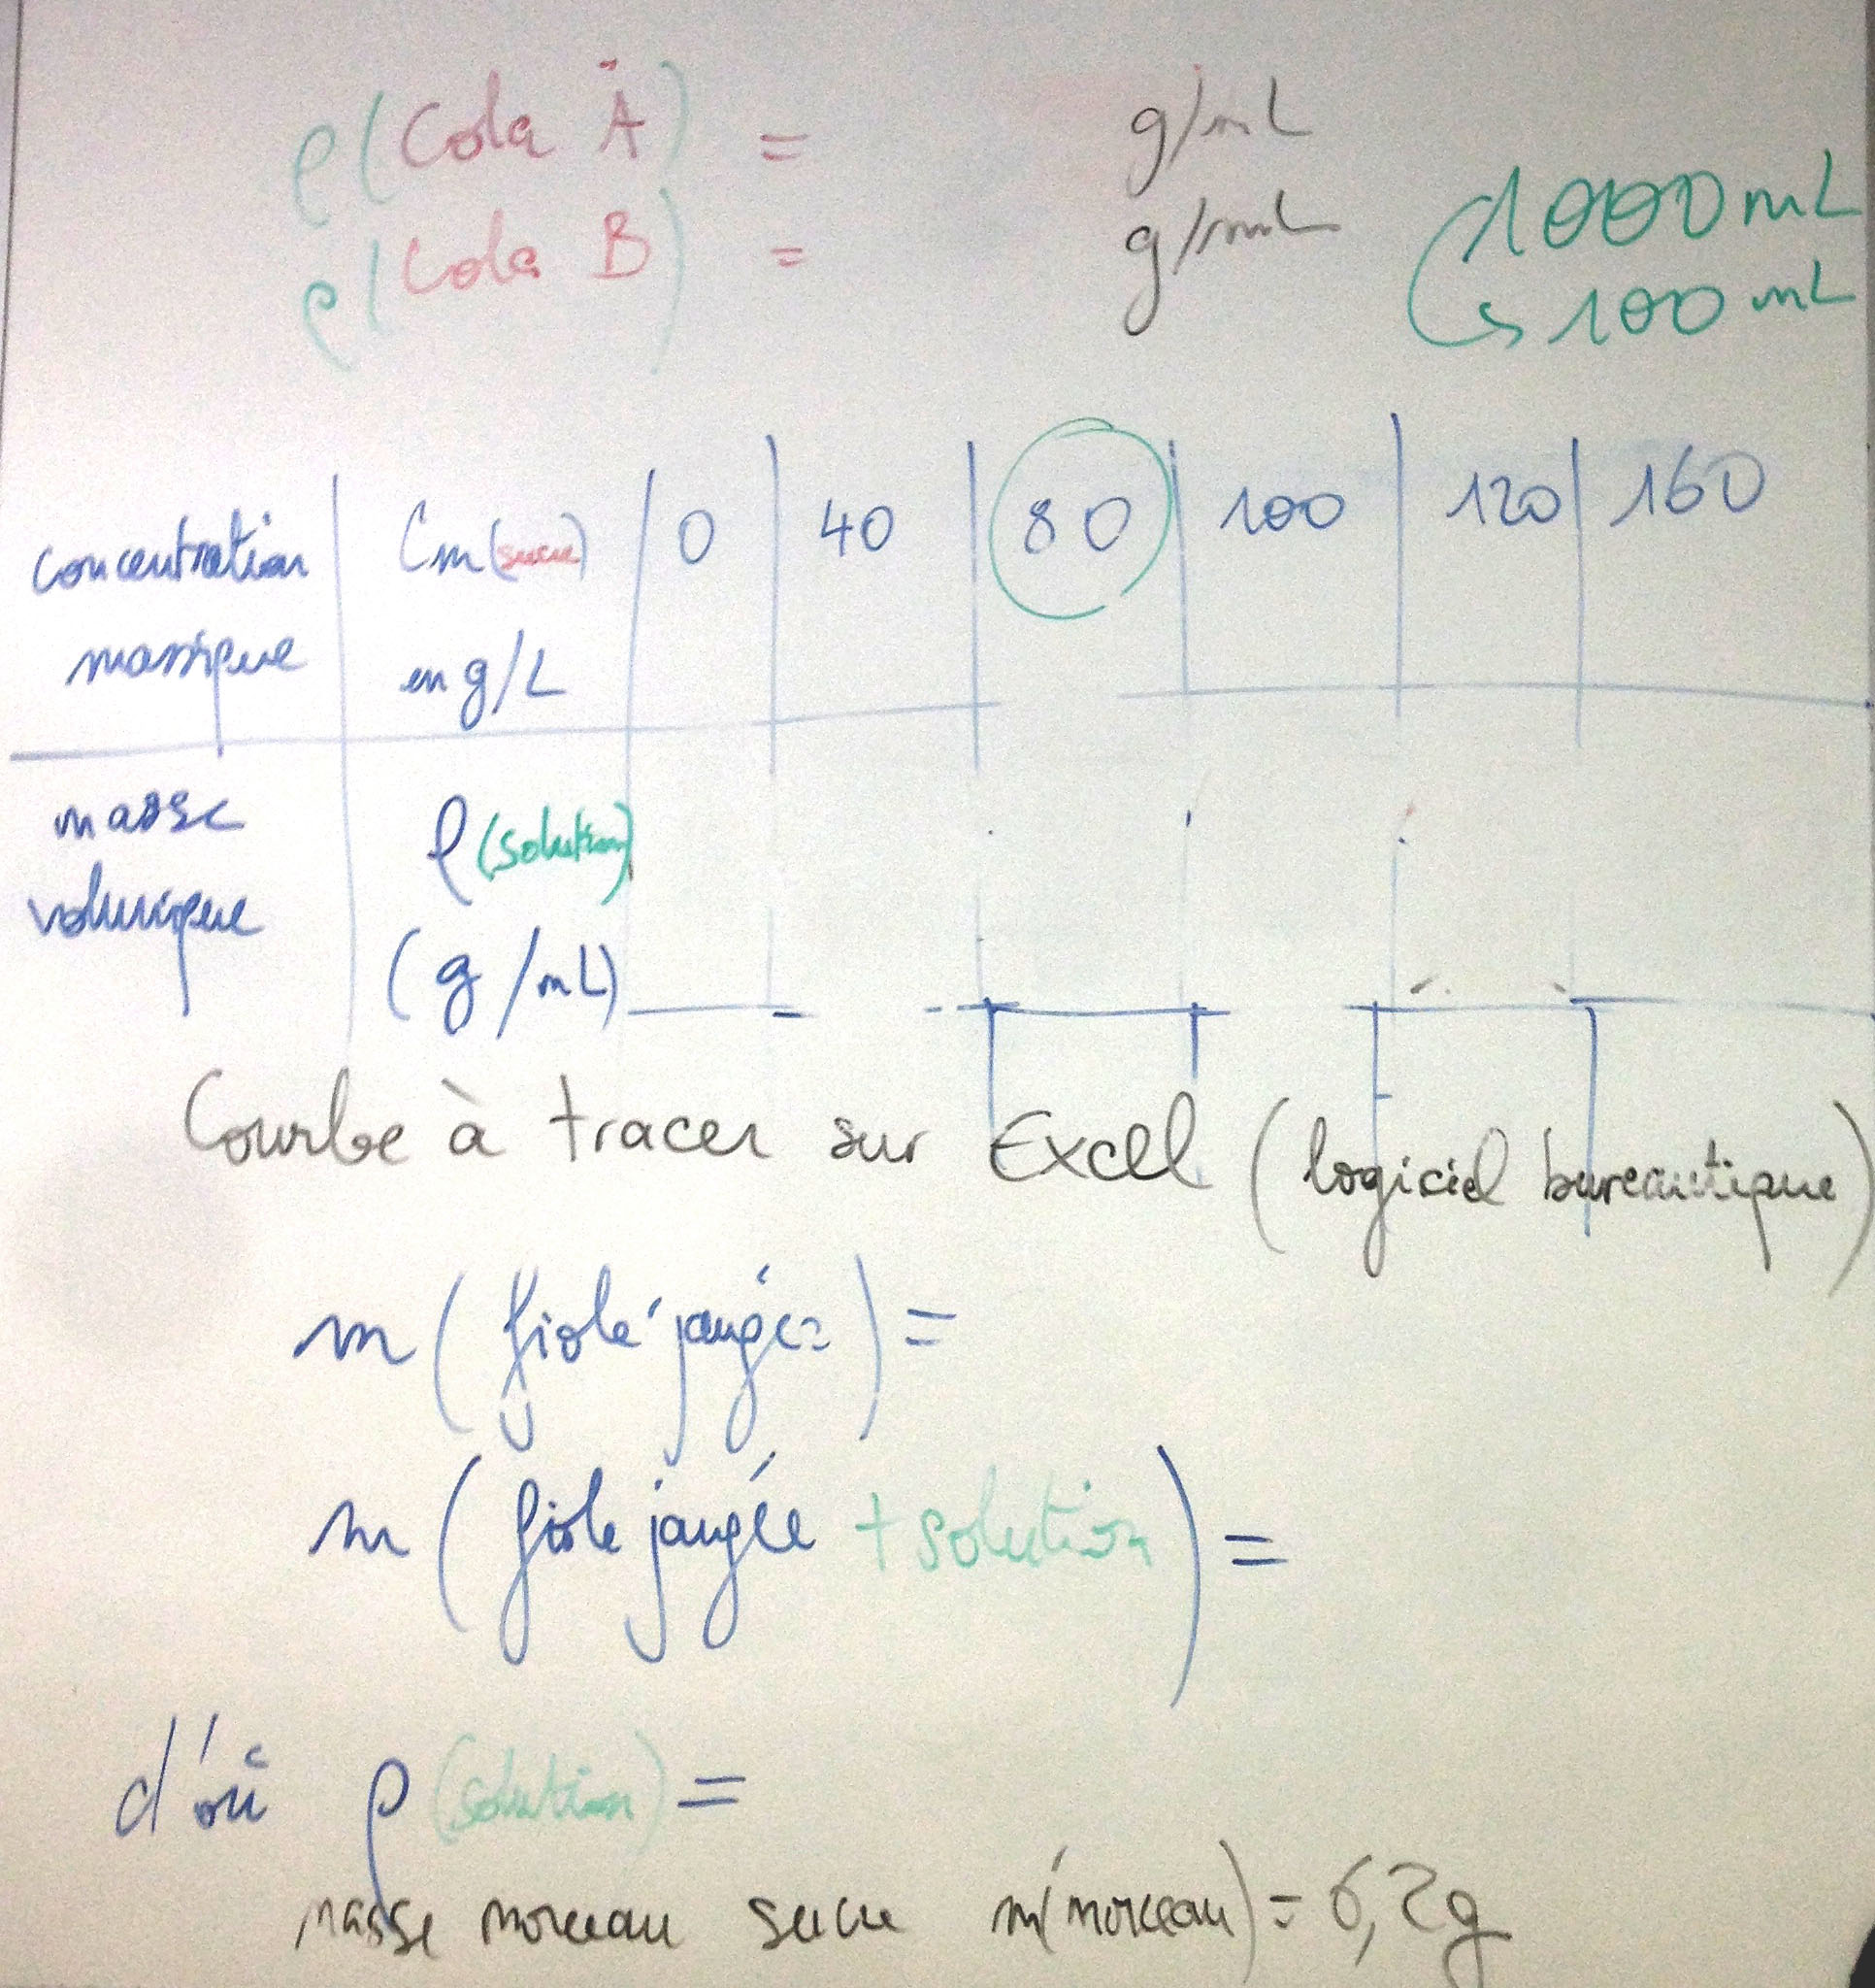 ρ(Cola A) = g/mL
ρ(Cola B) = g/mL
1000 mL
100 mL
concentration massique
Cm(sucre) en g/L
0 40 80 100 120 160
masse volumique
ρ(solution) (g/mL)
Courbe à tracer sur Excel (logiciel bureautique)
m(fiole jaugée) =
m(fiole jaugée + solution) =
d'où ρ(solution) =
masse morceau sucre m(morceau) = 6,2g